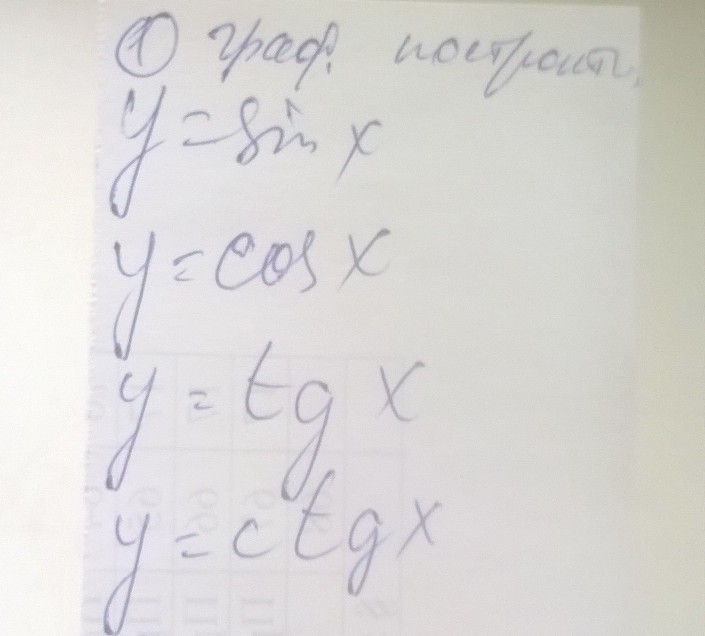 ① граф. построить,
y = sin x
y = cos x
y = tg x
y = ctg x